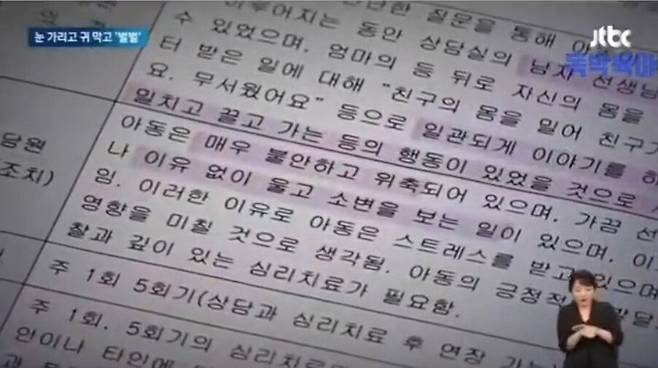 눈 가리고 귀 막고 '벌벌'
jtbc
루어지는 동안 상담실의 남자 선생님
수 있었으며, 엄마의 등 뒤로 자신의 몸을
터 받은 일에 대해 "친구의 몸을 밀어 친구가
요. 무서웠어요" 등으로 일관되게 이야기를 하
밀치고 끌고 가는 등의 행동이 있었을 것으로
아동은 매우 불안하고 위축되어 있으며, 가끔 선
나 이유 없이 울고 소변을 보는 일이 있으며, 이
임. 이러한 이유로 아동은 스트레스를 받고 있으며
영향을 미칠 것으로 생각됨. 아동의 긍정적 발달
찰과 깊이 있는 심리치료가 필요함.
당원
조치)
주 1회 5회기(상담과 심리치료 후 연장 가능
주 1회. 5회기의 심리치료
안이나 타인에